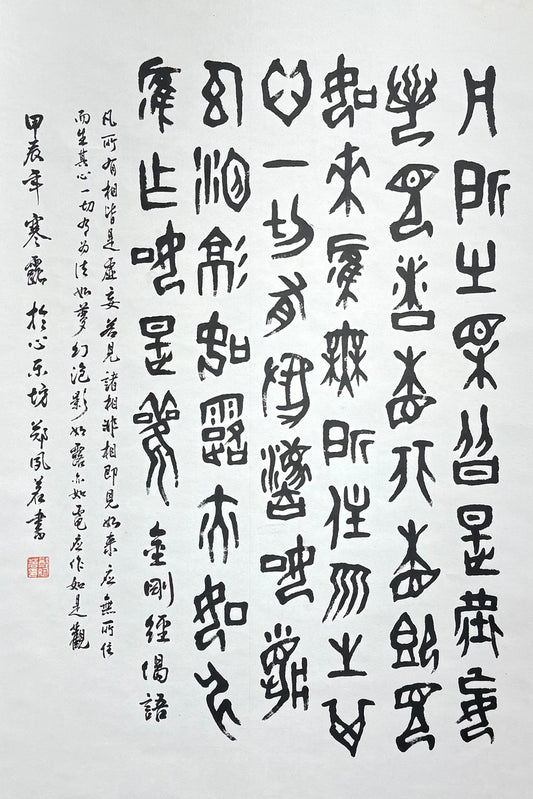 凡所有相皆是虛妄
若見諸相非相即見
如來應無所住而生其
心一切有為法如夢
幻泡影如露亦如電
應作如是觀 金剛經偈語
凡所有相皆是虛妄若見諸相非相即見如來應無所住
而生其心一切有為法如夢幻泡影如露亦如電應作如是觀
甲辰年寒露於心乐坊郑書